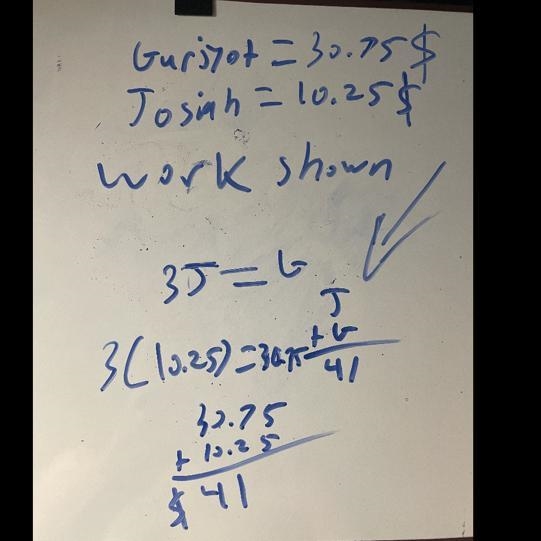 Gurjot = 30.75 $
Josiah = 10.25 $
work shown
3J = G
J
+ G
3(10.25) = 30.75 41
30.75
+ 10.25
$ 41